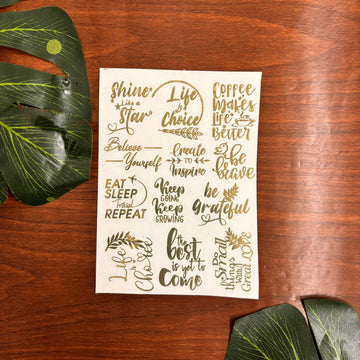 Shine
Like a
Star
Life
is
Choice
Coffee
Makes
Life
Better
Believe
Yourself
Create
TO
Inspire
be
brave
EAT
SLEEP
Travel
REPEAT
Keep
GOING
Keep
GROWING
be
Grateful
Life
is
Choice
the
best
is yet to
Come
Do
Small
things
With
Great
LOVE